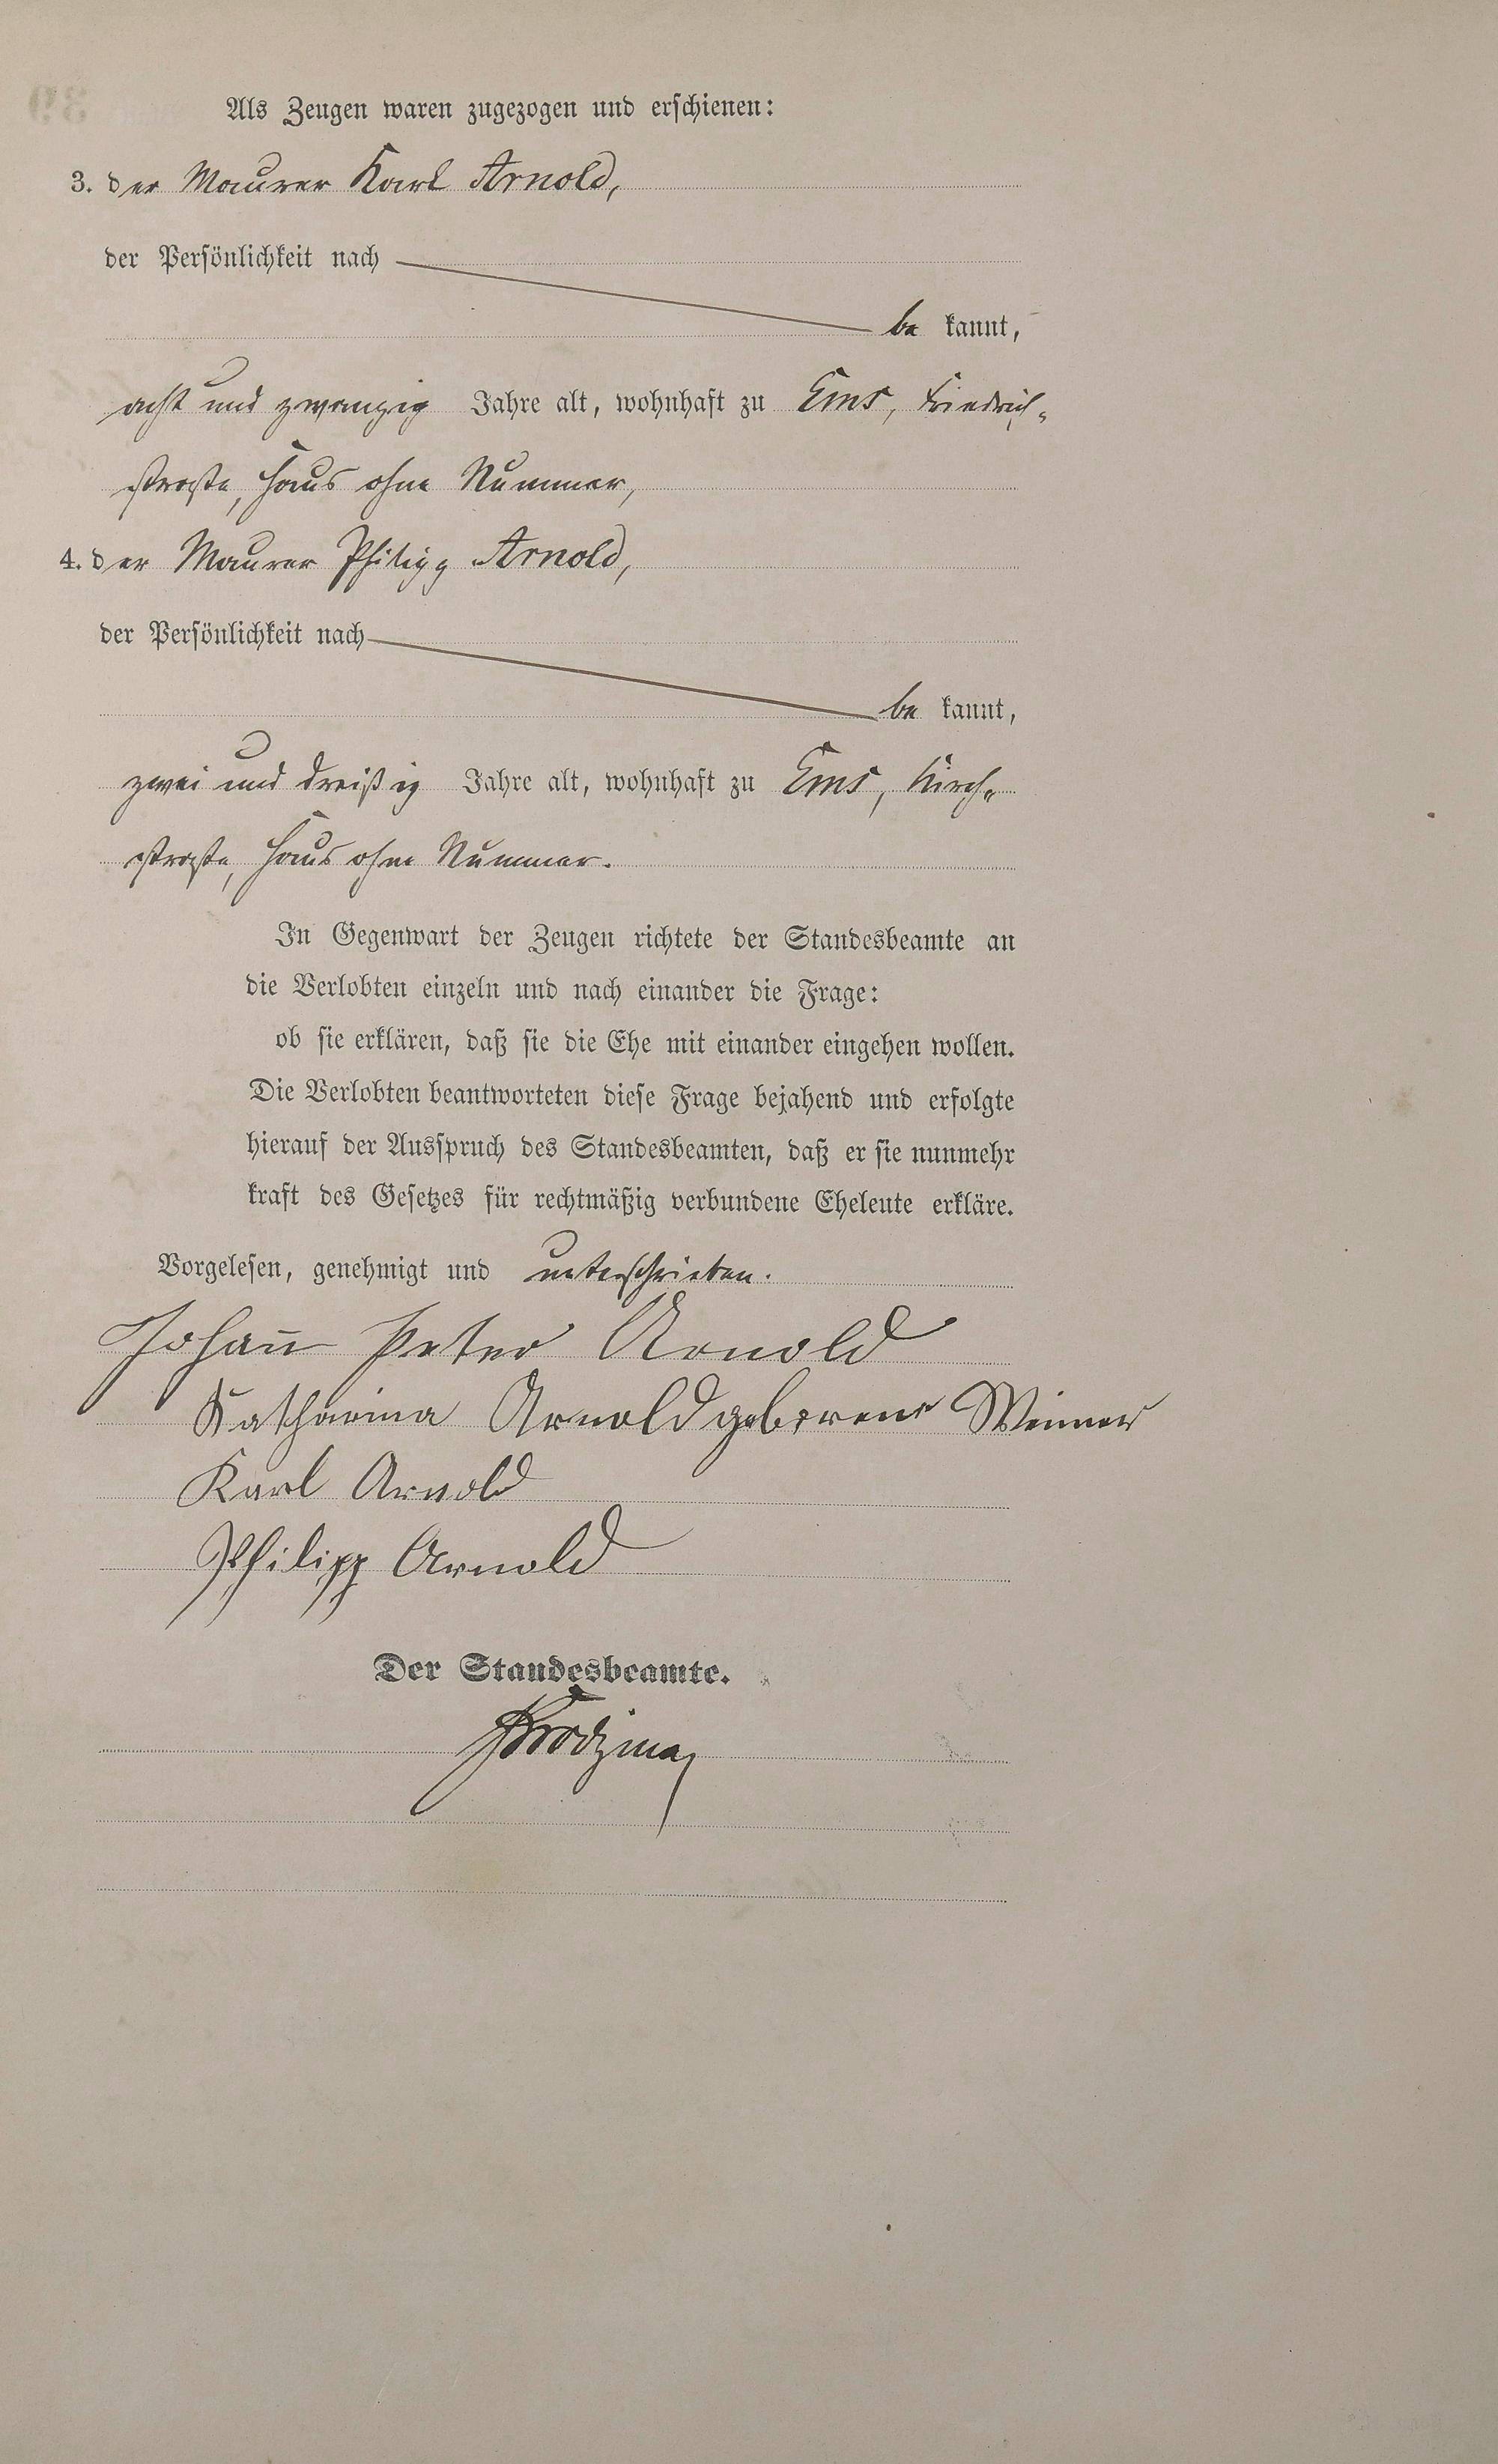 Als Zeugen waren zugezogen und erschienen:
3. der Maurer Karl Arnold,
der Persönlichkeit nach
be kannt,
acht und zwanzig Jahre alt, wohnhaft zu Ems, Friedrich-
straße, Haus ohne Nummer,
4. der Maurer Philipp Arnold,
der Persönlichkeit nach
be kannt,
zwei und dreißig Jahre alt, wohnhaft zu Ems, Kirch-
straße, Haus ohne Nummer.
In Gegenwart der Zeugen richtete der Standesbeamte an
die Verlobten einzeln und nach einander die Frage:
ob sie erklären, daß sie die Ehe mit einander eingehen wollen.
Die Verlobten beantworteten diese Frage bejahend und erfolgte
hierauf der Ausspruch des Standesbeamten, daß er sie nunmehr
kraft des Gesetzes für rechtmäßig verbundene Eheleute erkläre.
Vorgelesen, genehmigt und unterschrieben.
Johann Peter Arnold
Katharina Arnold geborene
Karl Arnold
Philipp Arnold
Der Standesbeamte.